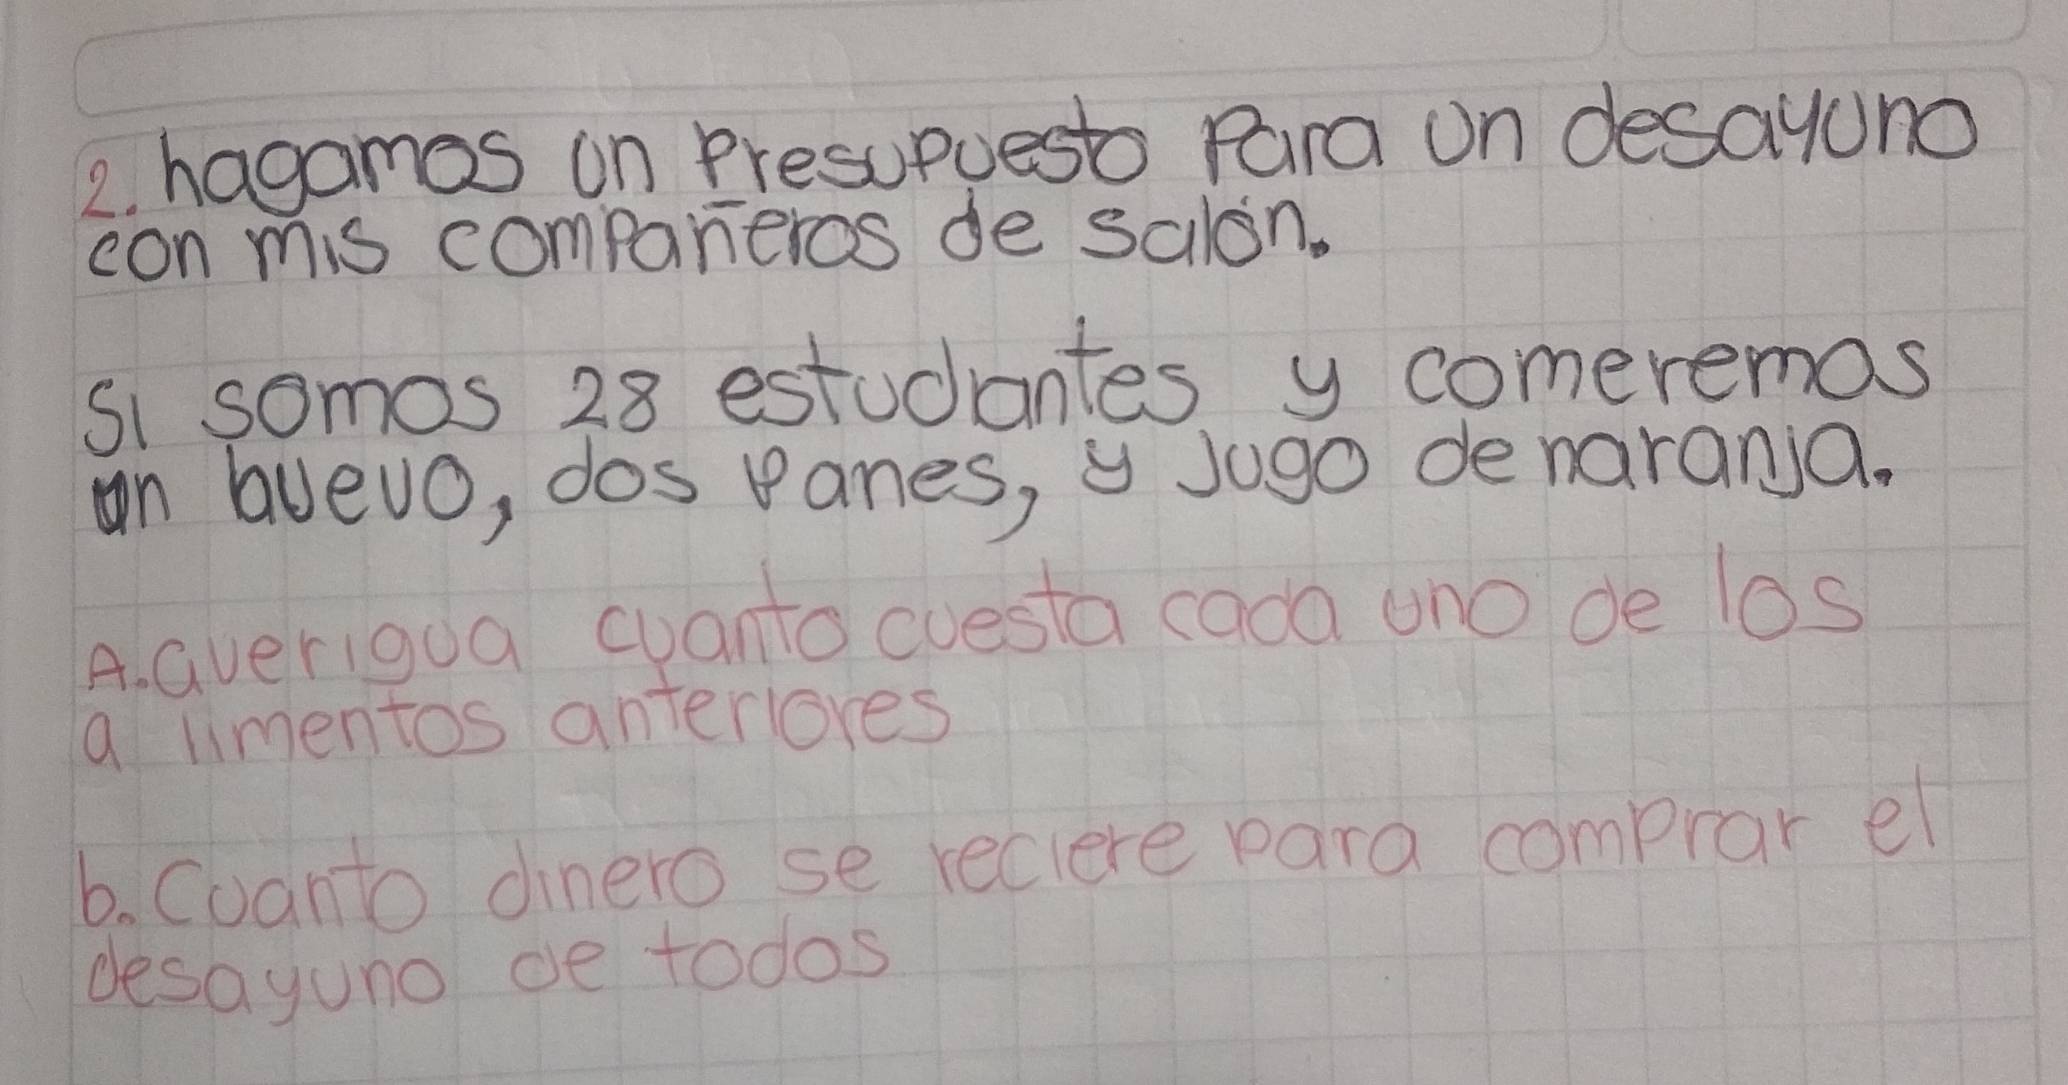 2. hagamos un Presupuesto Para un desayuno
con mis compañeros de salón.
Si somos 28 estudiantes y comeremos
un huevo, dos panes, y Jugo de naranja.
A. averigua cuanto cuesta cada uno de los
a limentos anteriores
b. Cuanto dinero se reciere para comprar el
desayuno de todos